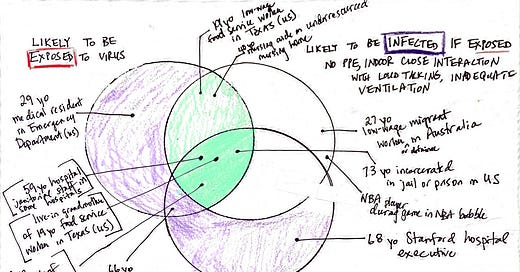 LIKELY TO BE
EXPOSED TO VIRUS
19 yo low-wage
food service worker
in Texas (US)
nursing aide on underresourced
nursing home
LIKELY TO BE INFECTED IF EXPOSED
NO PPE, INDOOR CLOSE INTERACTION
WITH LOUD TALKING, INADEQUATE
VENTILATION
29 yo
medical resident
in Emergency
Department (US)
27 yo
low-wage migrant
worker in Australia
or detainee
59 yo hospital
janitorial staff in
some hospitals
73 yo incarcerated
in jail or prison in US
live-in grandmother
of 19 yo food service
worker in Texas (US)
NBA player
during game in NBA bubble
68 yo Stanford hospital
executive
of
66 yo